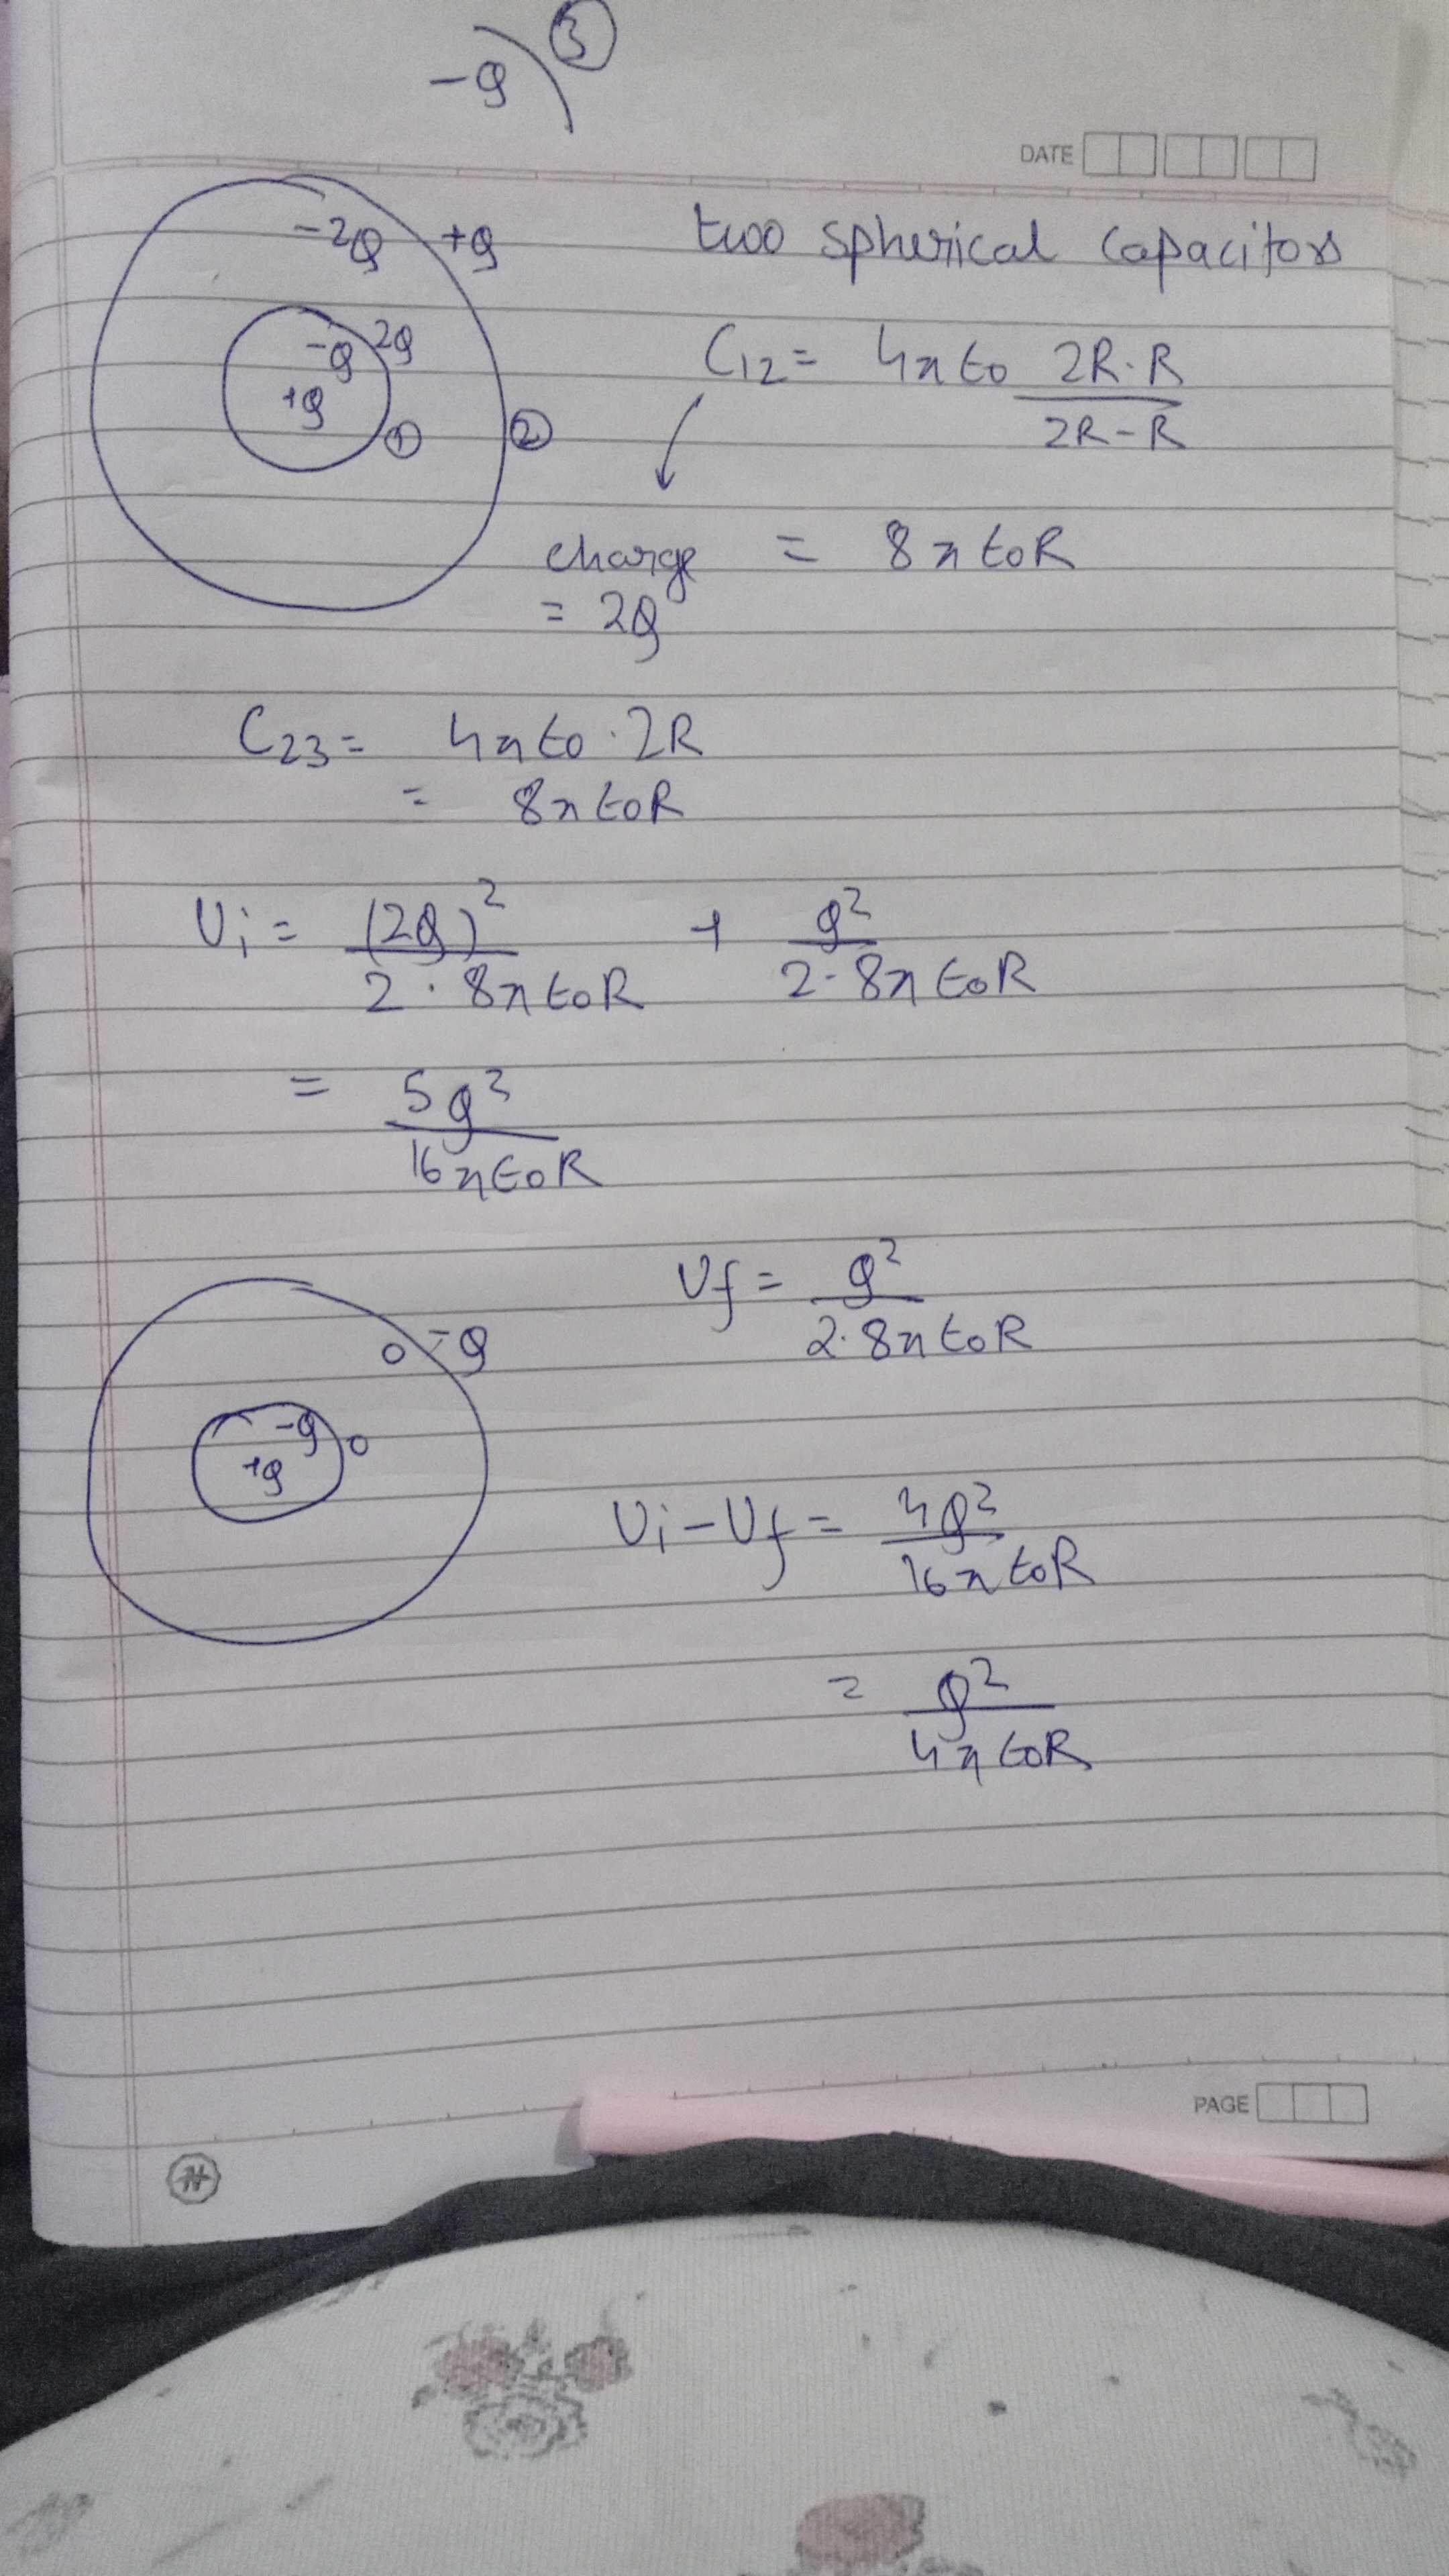 -Q ③
DATE
-2Q +Q two spherical capacitors
-Q 2Q
+Q ① ②
C₁₂ = 4π ε₀ 2R·R / 2R-R
charge = 8π ε₀R
= 2Q
C₂₃ = 4π ε₀ · 2R
= 8π ε₀R
Ui = (2Q)² / 2 · 8π ε₀R + Q² / 2 · 8π ε₀R
= 5Q² / 16π ε₀R
Uf = Q² / 2·8π ε₀R
0 -Q
-Q 0
+Q
Ui - Uf = 4Q² / 16π ε₀R
= Q² / 4π ε₀R
PAGE